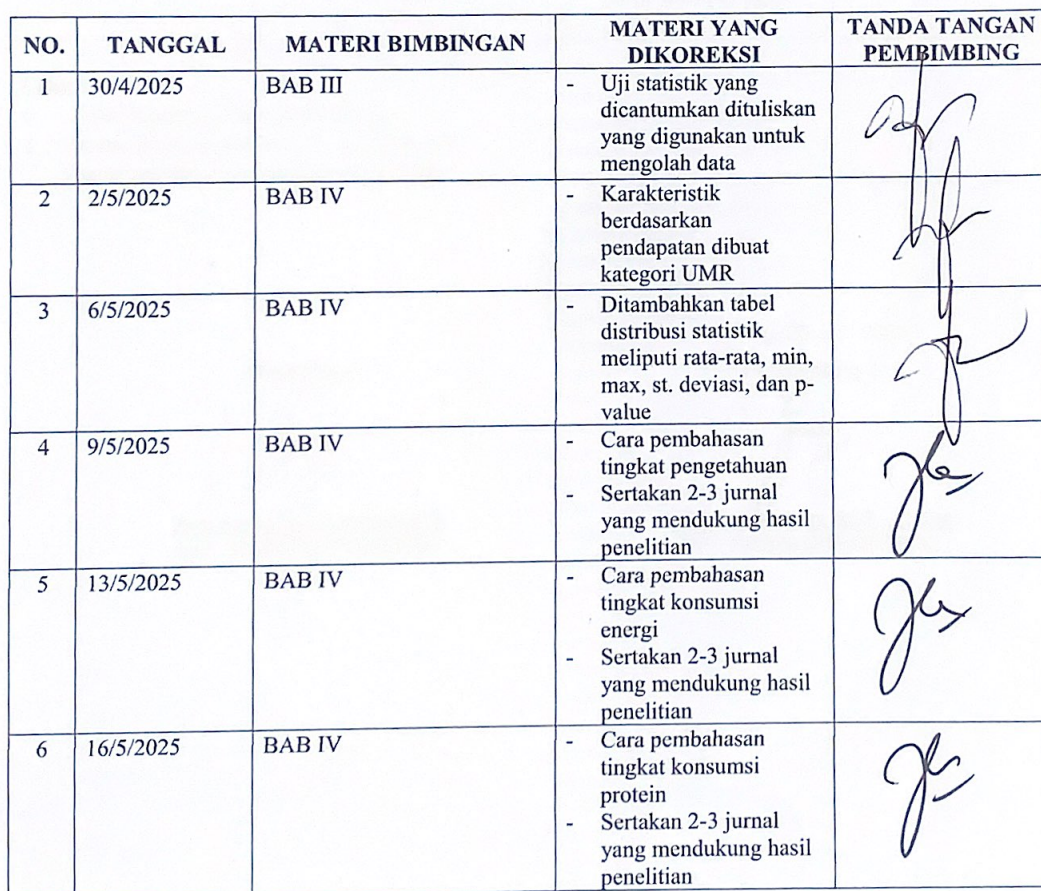 NO.
TANGGAL
MATERI BIMBINGAN
MATERI YANG
DIKOREKSI
TANDA TANGAN
PEMBIMBING
1
30/4/2025
BAB III
- Uji statistik yang
dicantumkan dituliskan
yang digunakan untuk
mengolah data
2
2/5/2025
BAB IV
- Karakteristik
berdasarkan
pendapatan dibuat
kategori UMR
3
6/5/2025
BAB IV
- Ditambahkan tabel
distribusi statistik
meliputi rata-rata, min,
max, st. deviasi, dan p-
value
4
9/5/2025
BAB IV
- Cara pembahasan
tingkat pengetahuan
- Sertakan 2-3 jurnal
yang mendukung hasil
penelitian
5
13/5/2025
BAB IV
- Cara pembahasan
tingkat konsumsi
energi
- Sertakan 2-3 jurnal
yang mendukung hasil
penelitian
6
16/5/2025
BAB IV
- Cara pembahasan
tingkat konsumsi
protein
- Sertakan 2-3 jurnal
yang mendukung hasil
penelitian